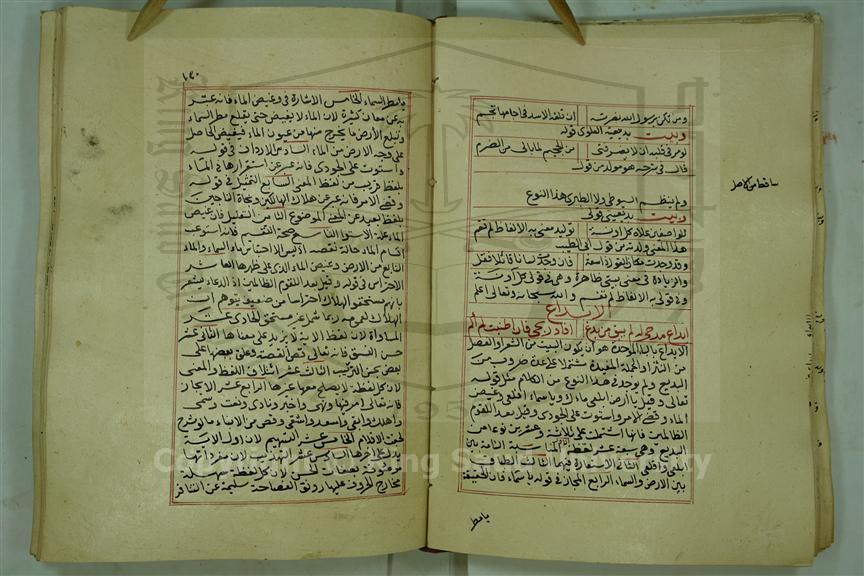 ومن تكن برسول الله نصرته
ان تلقه الاسد في اجامها تجم
وبيت بديعية العلوي قوله
من للجيم لما بالى من الضرم
قال في شرحه هو مولد من قول
ولم ينظم السيوطي ولا الطبري هذا النوع
وبيت بديعيتي قولي
توليد معنى به الالفاظ لم تقم
هذا المعنى ولدته من قول ابي الطيب
وقد وجدت مكان القول ذا سعة
فان وجدت لسانا قائلا فقل
والزيادة في معنى بيتي ظاهرة وهي في قولي
وفي قولي به الالفاظ لم تقم والله سبحانه وتعالى اعلم
الابداع
الابداع بالباء الموحدة هو أن يكون البيت من الشعر او الفصل
من النثر او الجملة المفيدة مشتملا على عدة ضروب من
البديع ولم يوجد في هذا النوع من الكلام مثل قوله
تعالى وقيل يا أرض ابلعي ماءك ويا سماء اقلعي وغيض
الماء وقضي الامر واستوت على الجودي وقيل بعدا للقوم
الظالمين فانها اشتملت على ثلاثة وعشرين نوعا من
البديع وهي سبعة عشر لفظة المناسبة التامة بين
ابلعي واقلعي الثاني الاستعارة فيهما الثالث الطباق
بين الارض والسماء الرابع المجاز في قوله يا سماء فان الحقيقة
يا مطر
ساقط من الاصل
يا مطر السماء الخامس الاشارة في وغيض الماء فانه عبر
به عن معان كثيرة لان الماء لا يغيض حتى يقلع مطر السماء
وتبلع الأرض ما يخرج منها من عيون الماء فيغيض الحاصل
على وجه الارض من الماء السادس الارداف في قوله
واستوت على الجودي فانه عبر عن استقرارها في المكان
بلفظ قريب من لفظ المعنى السابع التمثيل في قوله
وقضي الامر فانه عبر عن هلاك الهالكين ونجاة الناجين
بلفظ بعيد عن المعنى الموضوع الثامن التعليل فان غيض
الماء علة الاستواء التاسع صحة التقسيم فانه استوعب
اقسام الماء حالة نقصه اذ ليس الا احتباس ماء السماء والماء
النابع من الارض وغيض الماء الذي على ظهرها العاشر
الاحتراس في قوله وقيل بعدا للقوم الظالمين اذ الدعاء يشعر
بانهم مستحقوا الهلاك احتراسا من ضعيف يتوهم ان
الهلاك لعمومه ربما شمل غير مستحق الحادي عشر
المساواة لان لفظ الاية لا يزيد على معناها الثاني عشر
حسن النسق فانه تعالى قص القصة وعطف بعضها على
بعض بحسن الترتيب الثالث عشر ائتلاف اللفظ والمعنى
لان كل لفظة لا يصلح معها غيرها الرابع عشر الايجاز
فانه تعالى امر فيها ونهى واخبر ونادى ونعت وسمى
واهلك وابقى واسعد واشقى وقص من الانباء ما لو شرح
لجفت الاقلام الخامس عشر التسهيم لان اول الاية
يدل على اخرها السادس عشر التهذيب لان مفرداتها
موصوفة بصفات الحسن لان كل لفظة سهلة
مخارج الحروف عليها رونق الفصاحة سليمة عن التنافر